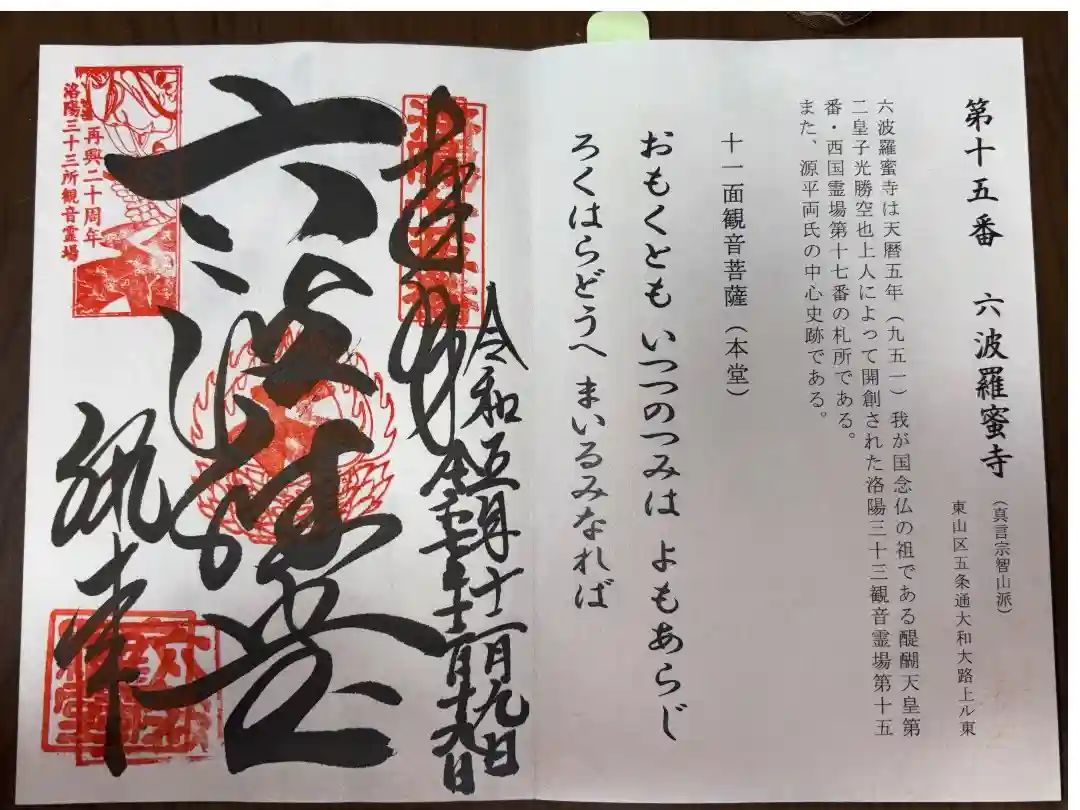 第十五番 六波羅蜜寺
（真言宗智山派）
東山区五条通大和大路上ル東
六波羅蜜寺は天暦五年（九五一）我が国念仏の祖である醍醐天皇第
二皇子光勝空也上人によって開創された洛陽三十三観音霊場第十五
番・西国霊場第十七番の札所である。
また、源平両氏の中心史跡である。
十一面観音菩薩（本堂）
おもくとも いつつのつみは よもあらじ
ろくはらどうへ まいるみなれば
令和
六波羅堂
再興二十周年
洛陽三十三所観音霊場